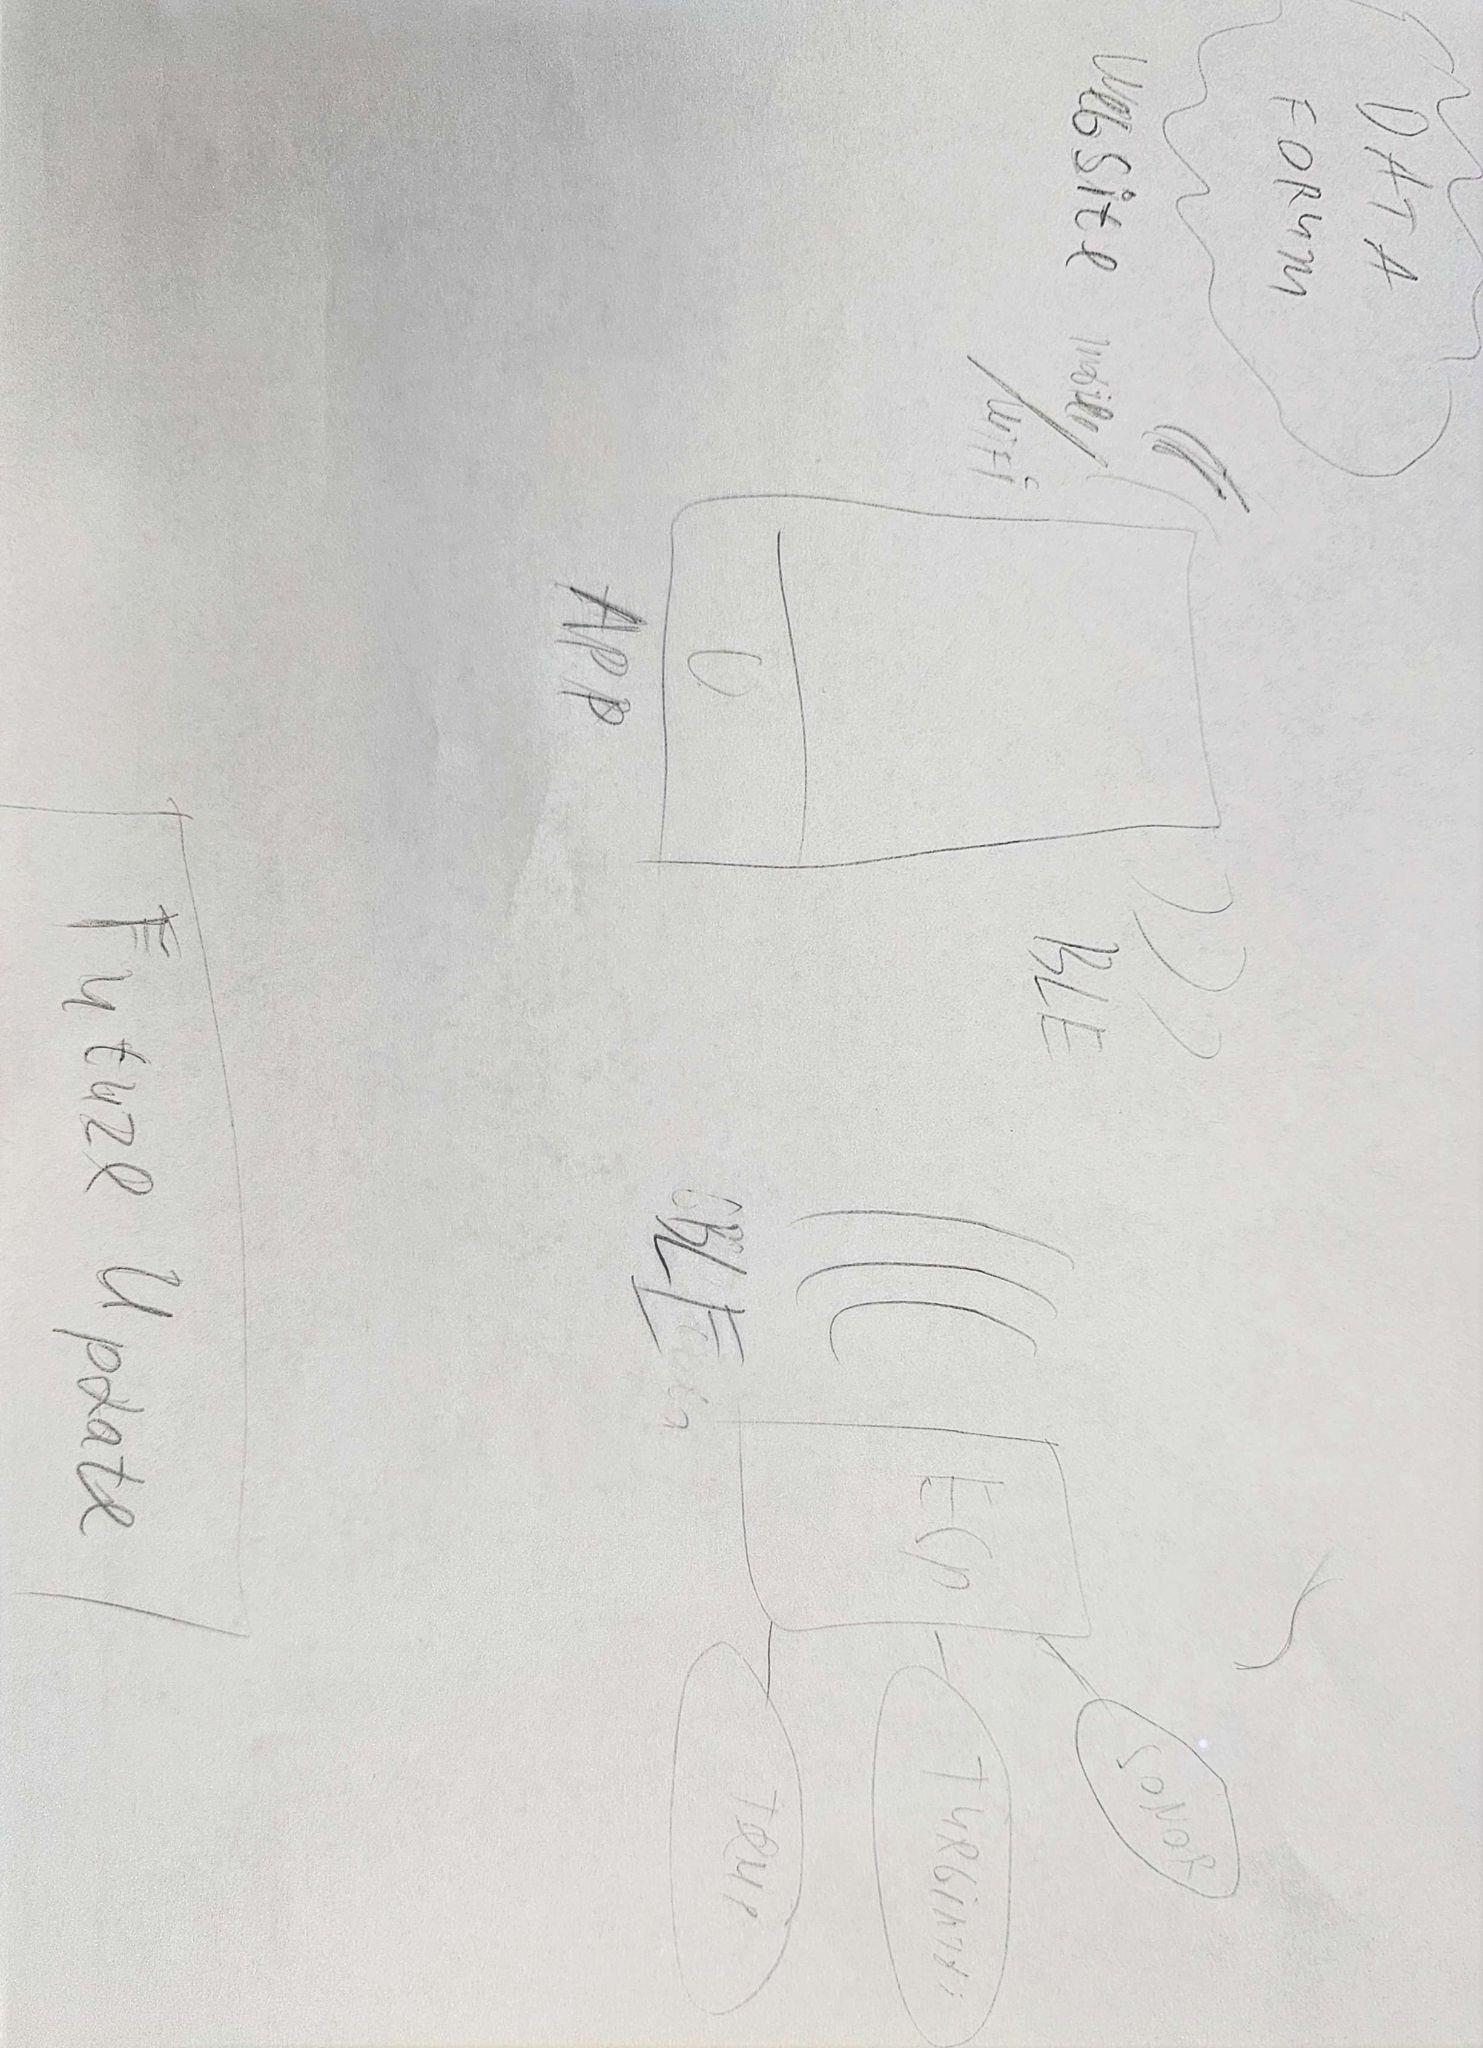 DATA
FORUM
Website
mobile/
wifi
APP
BLE
BLE
SONAR
TEMP
Future Update